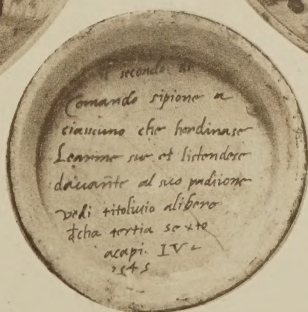 il secondo di
Comando sipione a
ciascuno che hordinase
Learme sue et sistendese
davante al suo padiione
vedi titoliuio alibero
dcha tertia sexto
acapi. IV
1545